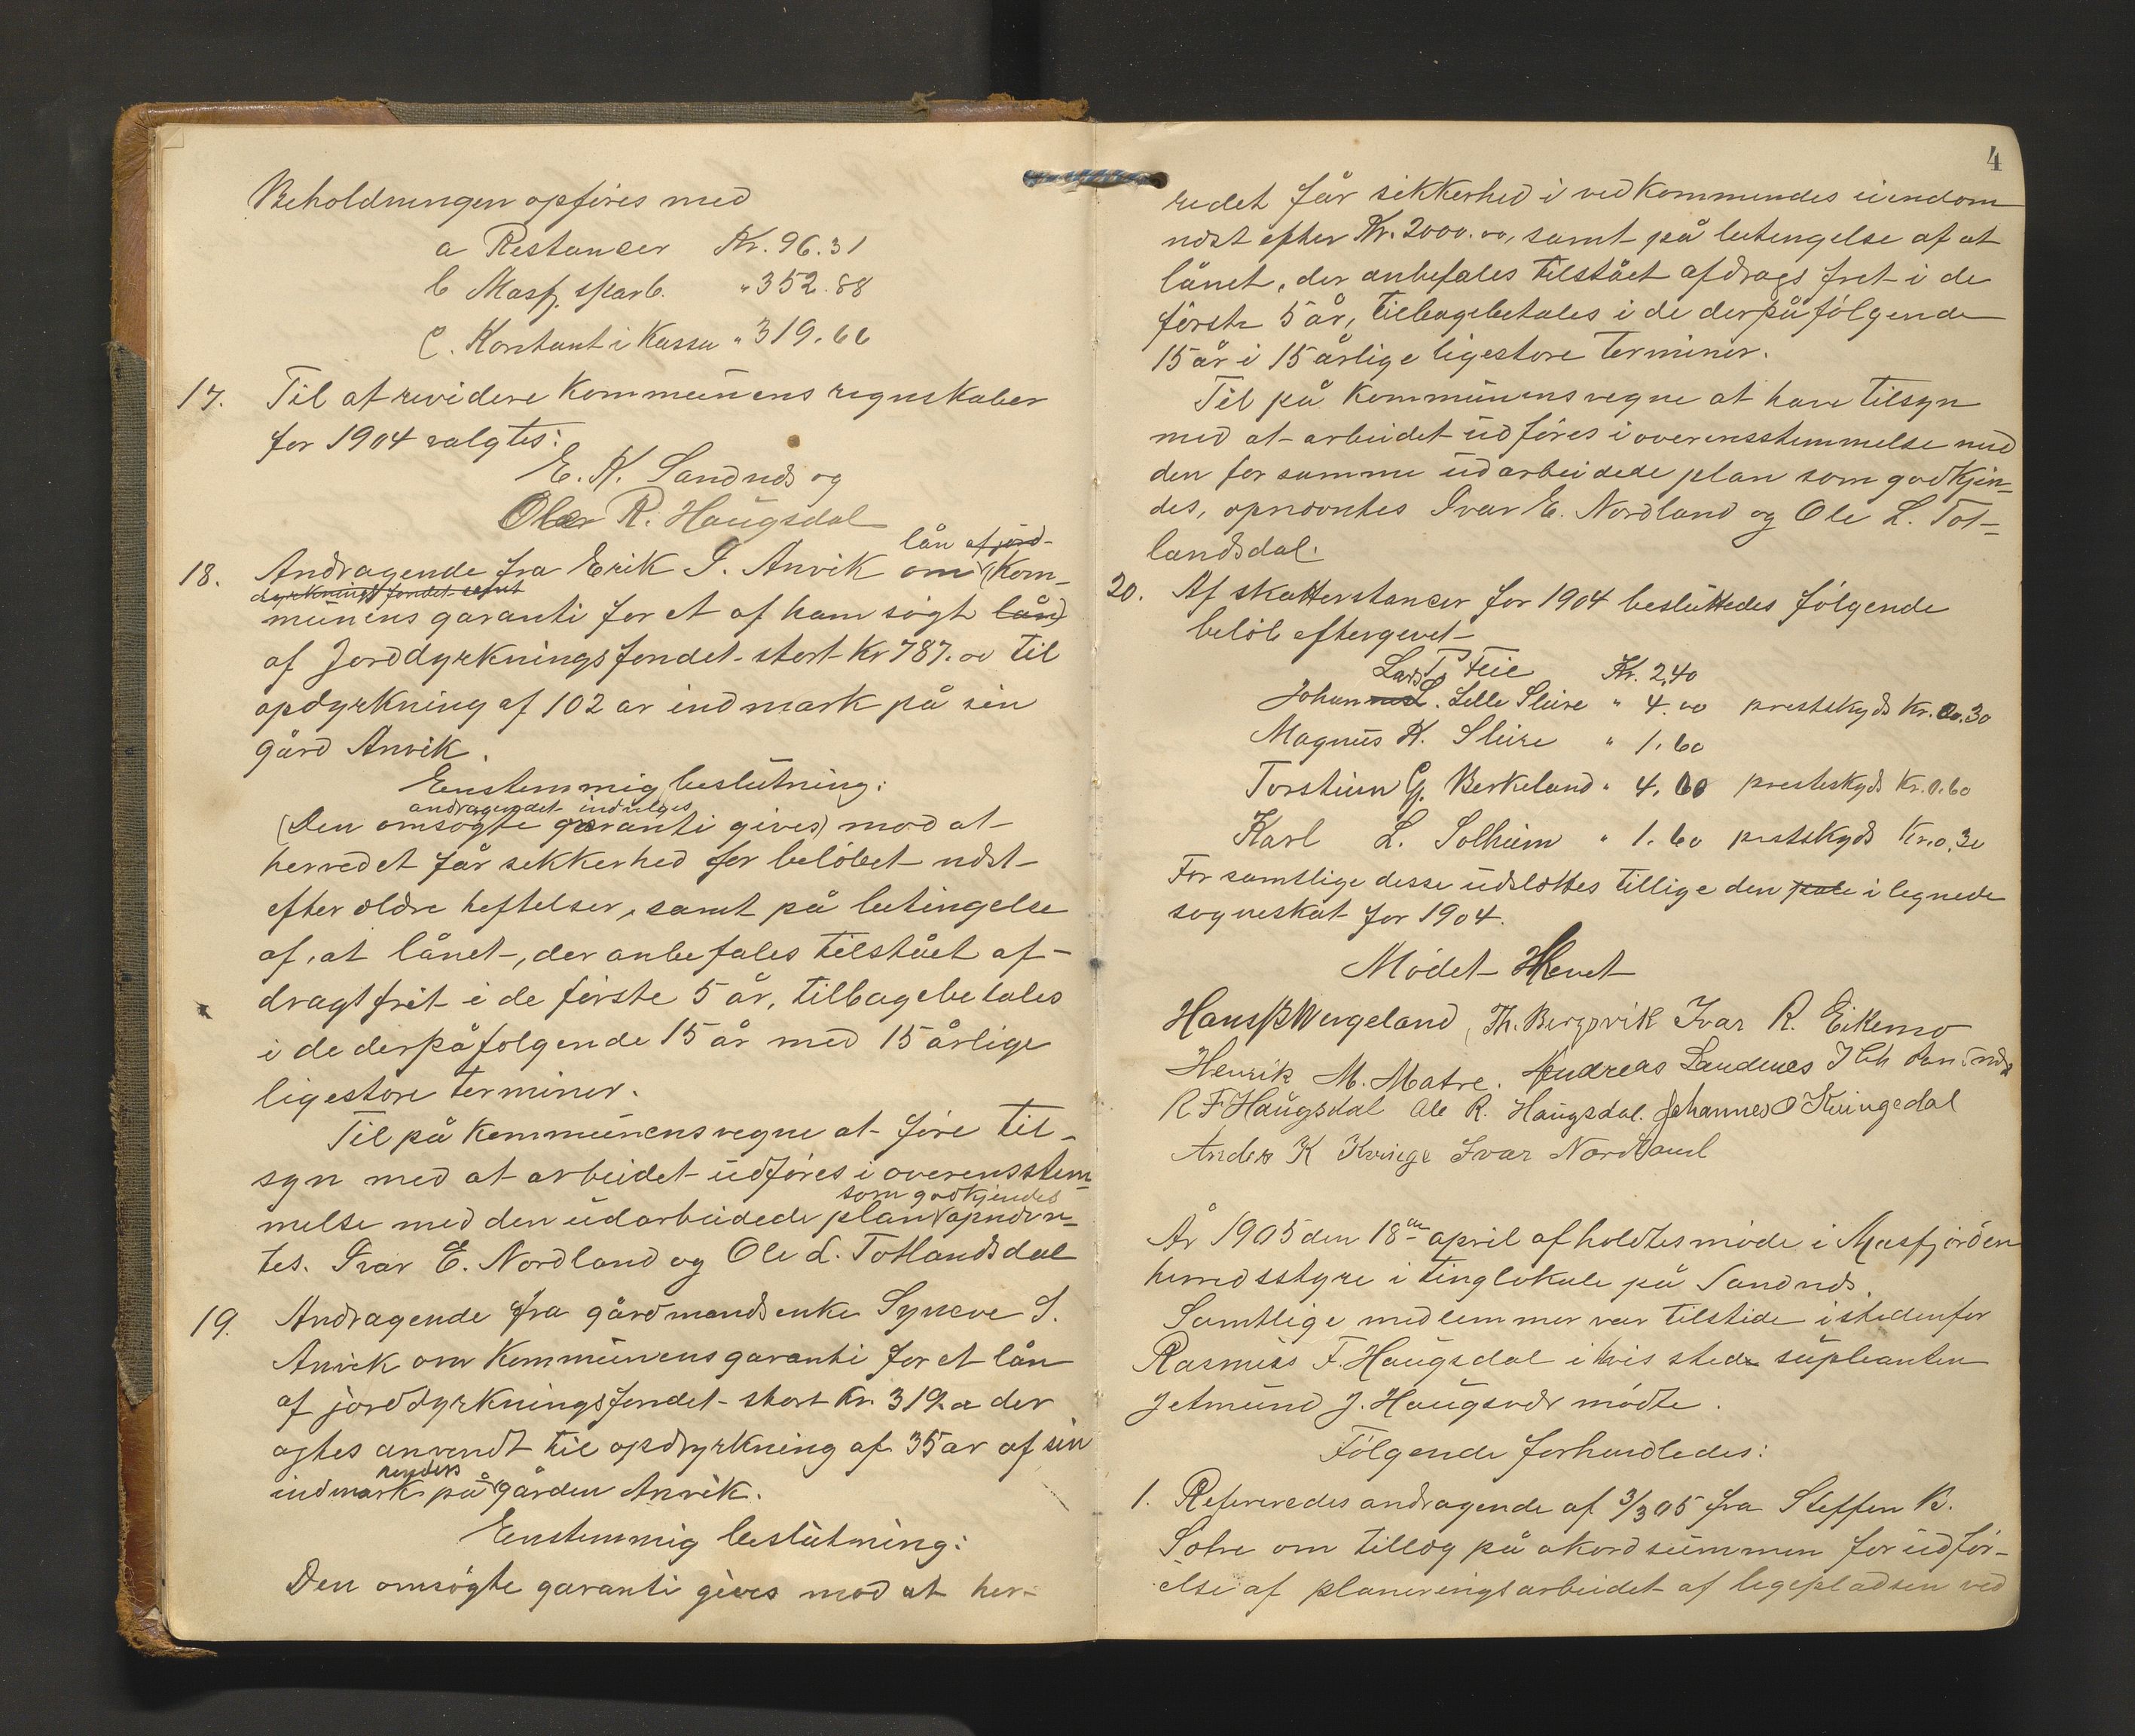 Beholdningen opføres med
a Restancer Kr. 96.31
b Masfj. sparb. " 352.88
c. Kontant i Kassa " 319.66
17. Til at revidere kommunens regnskaber
for 1904 valgtes:
E. K. Sandnæs og
Ole R. Haugsdal
lån af jord-
18. Andragende fra Erik I. Anvik om (Kom-
dyrkningsfondet samt
munens garanti for et af ham søgt lån)
af Jorddyrkningsfondet stort Kr 787.00 til
opdyrkning af 102 ar indmark på sin
gård Anvik.
Enstemmig beslutning:
andragendet indvilges
(Den omsøgte garanti gives) mod at
herredet får sikkerhed for beløbet næst
efter ældre heftelser, samt på betingelse
af, at lånet, der anbefales tilstået af-
dragsfrit i de første 5 år, tilbagebetales
i de derpåfølgende 15 år med 15 årlige
ligestore terminer.
Til på kommunens vegne at føre til-
syn med at arbeidet udføres i overensstem-
som godkjendes
melse med den udarbeidede plan opnævn-
tes. Ivar E. Nordland og Ole L. Totlandsdal
19. Andragende fra gårdmandsenke Synneve S.
Anvik om kommunens garanti for et lån
af jorddyrkningsfondet stort kr. 319.00 der
agtes anvendt til opdyrkning af 35 ar af sin
hendes
indmark på gården Anvik.
Enstemmig beslutning:
Den omsøgte garanti gives mod at her-
4
redet får sikkerhed i vedkommendes eiendom
næst efter Kr. 2000.00, samt på betingelse af at
lånet, der anbefales tilstået afdragsfrit i de
første 5 år, tilbagebetales i de derpåfølgende
15 år i 15 årlige ligestore terminer.
Til på kommunens vegne at have tilsyn
med at arbeidet udføres i overensstemmelse med
den for samme udarbeidede plan som godkjen-
des, opnævntes Ivar E. Nordland og Ole L. Tot-
landsdal.
20. Af skatterestancer for 1904 besluttedes følgende
beløb eftergivet
Lars T. Feie Kr. 2,40
Johannes L. Lille Sleire " 4.00 prestskyds Kr. 0.30
Magnus K. Sleire " 1.60
Torstein G. Berkeland " 4.00 presteskyds Kr. 0.60
Karl L. Solheim " 1.60 prestskyds Kr. 0.30
For samtlige disse udslettes tillige den ilegnede
sogneskat for 1904.
Mødet Hævet
Hans P Wergeland, Th. Bergsvik Ivar R. Eikemo
Henrik M. Matre. Andreas Sandnes
R F Haugsdal Ole R. Haugsdal. Johannes O Kvingedal
Anders K Kvinge Ivar Nordland
År 1905 den 18de april afholdtes møde i Masfjorden
herredsstyre i tinglokale på Sandnæs.
Samtlige medlemmer var tilstede istedenfor
Rasmus F. Haugsdal i hvis sted supleanten
Jetmund J. Haugsvær mødte.
Følgende forhandledes:
1. Refereredes andragende af 3/3 05 fra Steffen B.
Solre om tillæg på akordsummen for udfør-
else af planeringsarbeidet af legepladsen ved